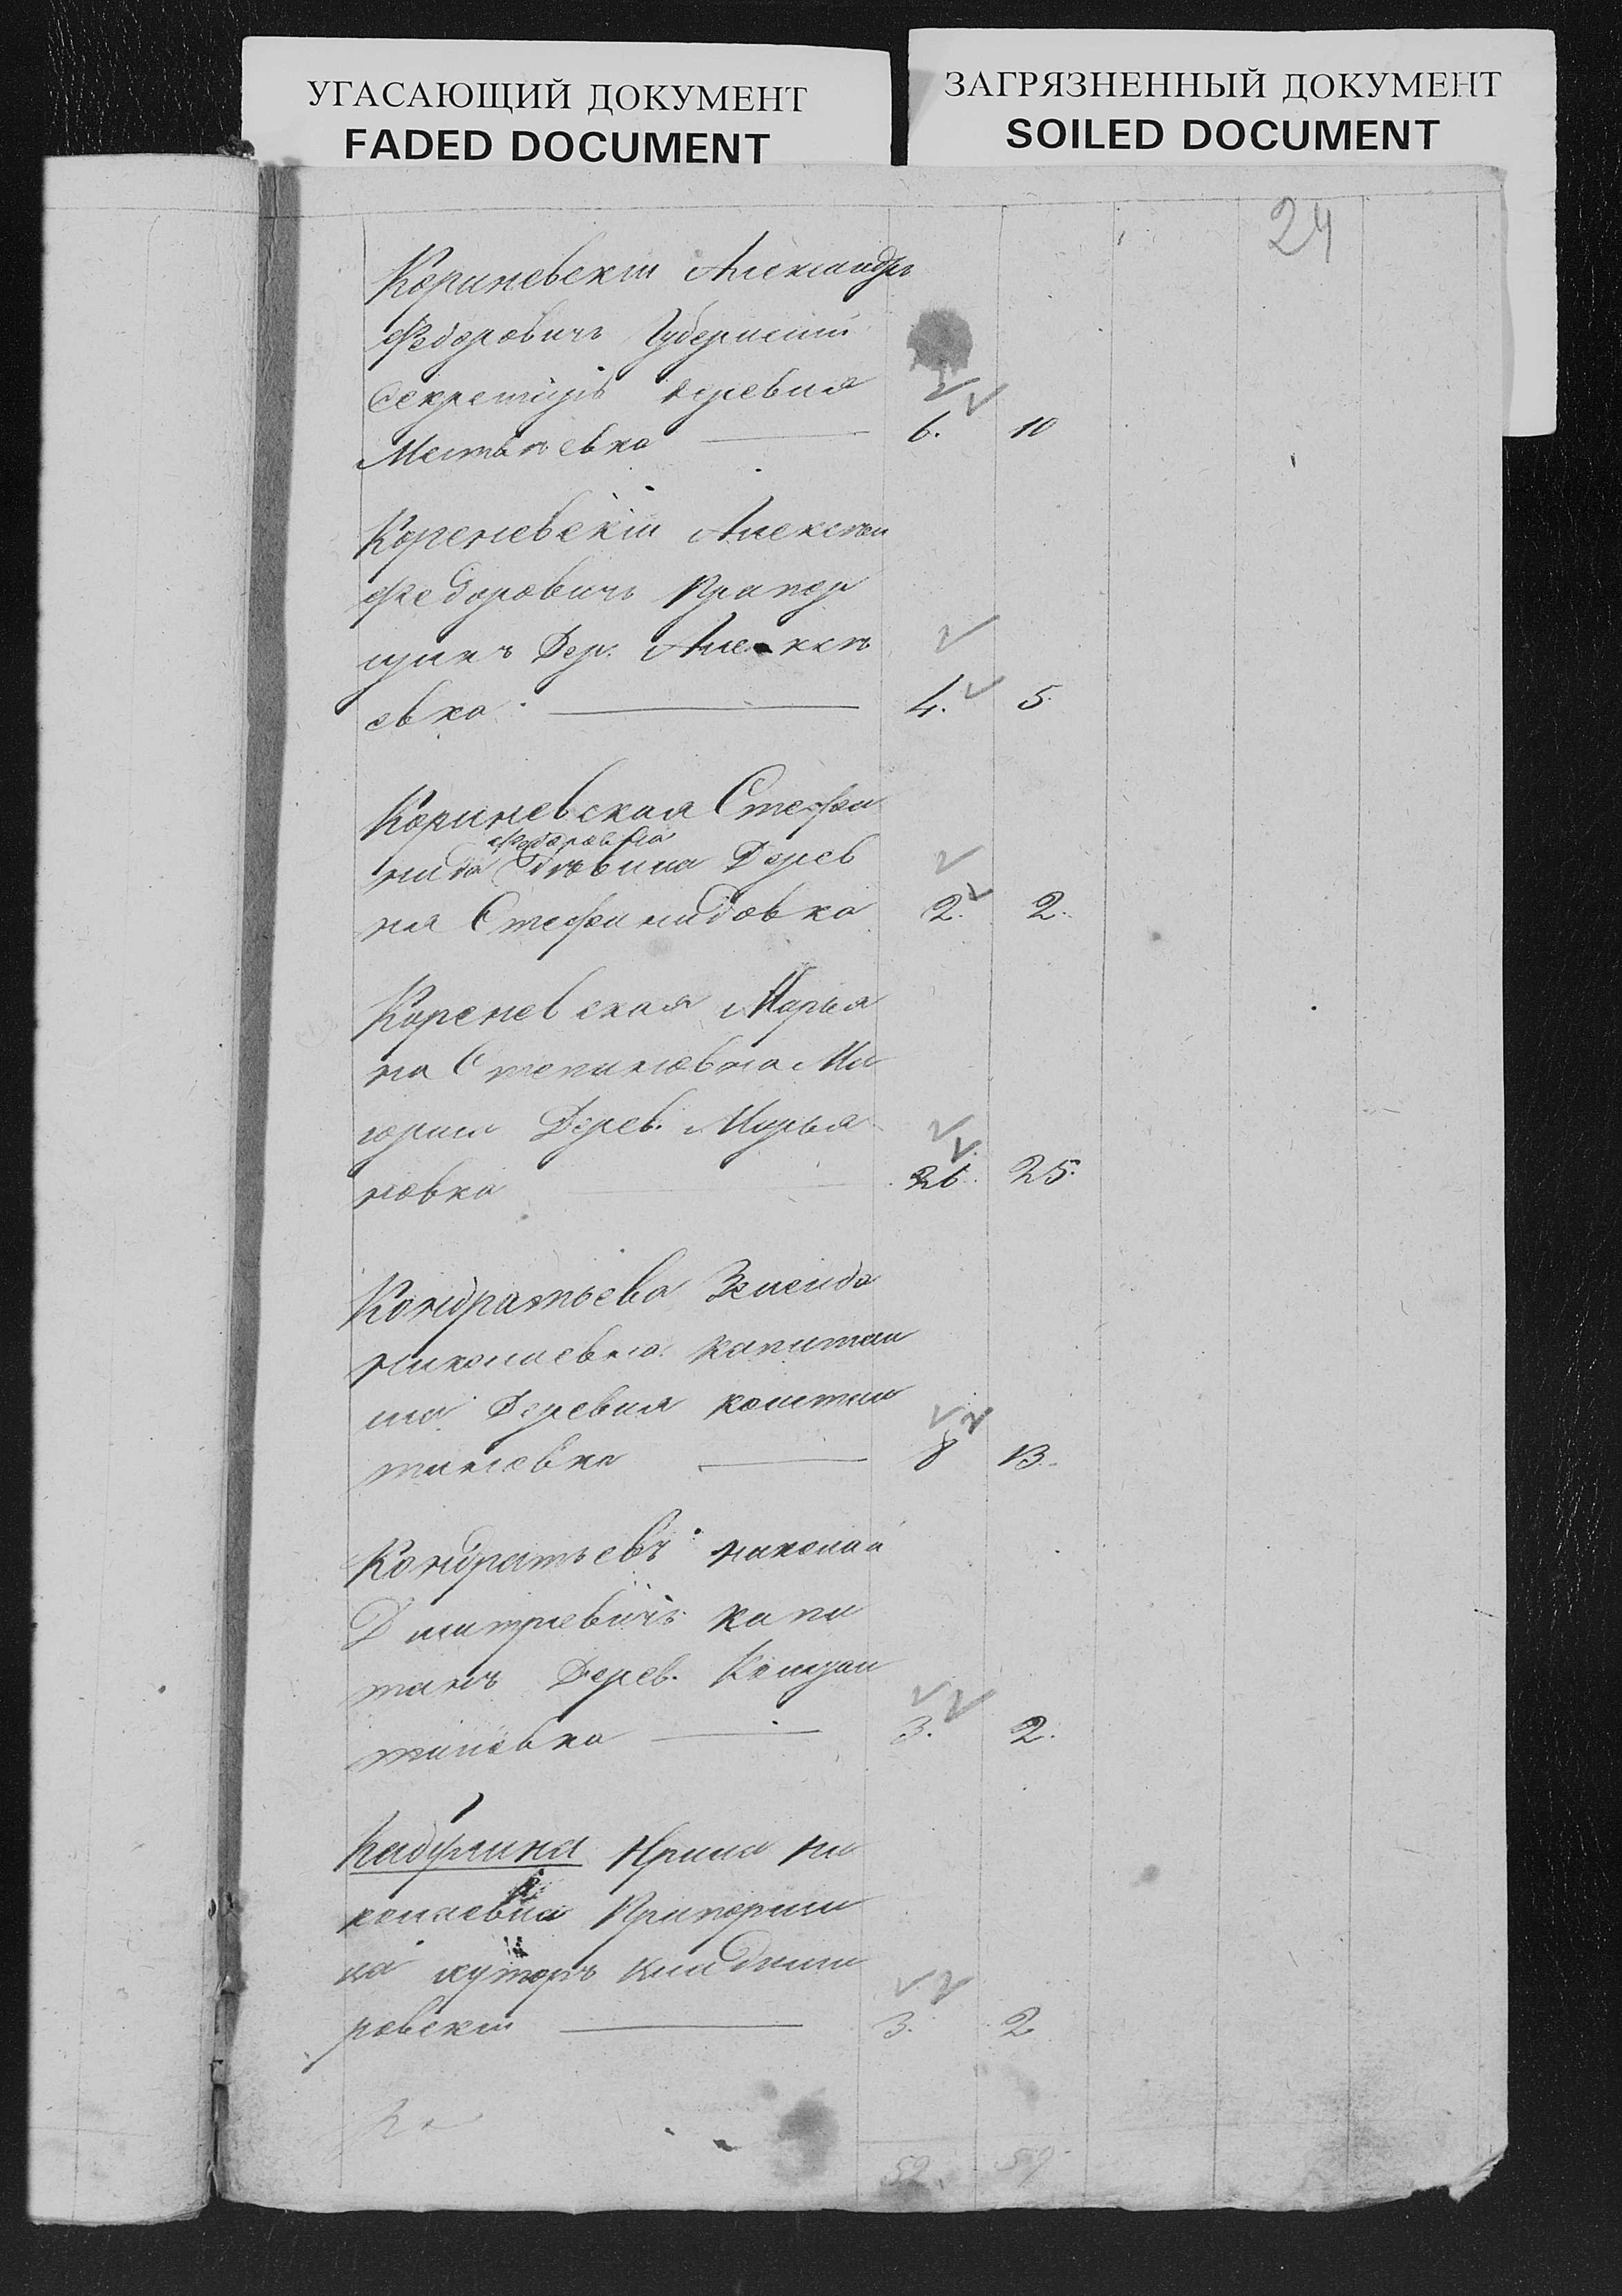 УГАСАЮЩИЙ ДОКУМЕНТ
FADED DOCUMENT
ЗАГРЯЗНЕННЫЙ ДОКУМЕНТ
SOILED DOCUMENT
24
Кориневскій Александръ
Федоровичъ Губернскій
Секретарь деревня
6. 10
Кореневскій Алексѣй
Федоровичъ Прапор
щикъ Дер. Алексѣ
евка 4. 5.
Кориневская Стефа
нида Федоровна Дѣвица Дерев
ня Стефанидовка 2. 2.
Кореневская Марья
на Степановна Ма
іорша Дерев. Марья
новка 26. 25.
Кондратьева Зенеида
Николаевна Капитан
ша Деревня Констан
тиновка 8 13.
Кондратьевъ Николай
Дмитріевичъ Капи
танъ Дерев. Констан
тиновка 3. 2.
Ирина Ни
колаевна Прапорщи
ца хуторъ
ровскій 3. 2
52. 59